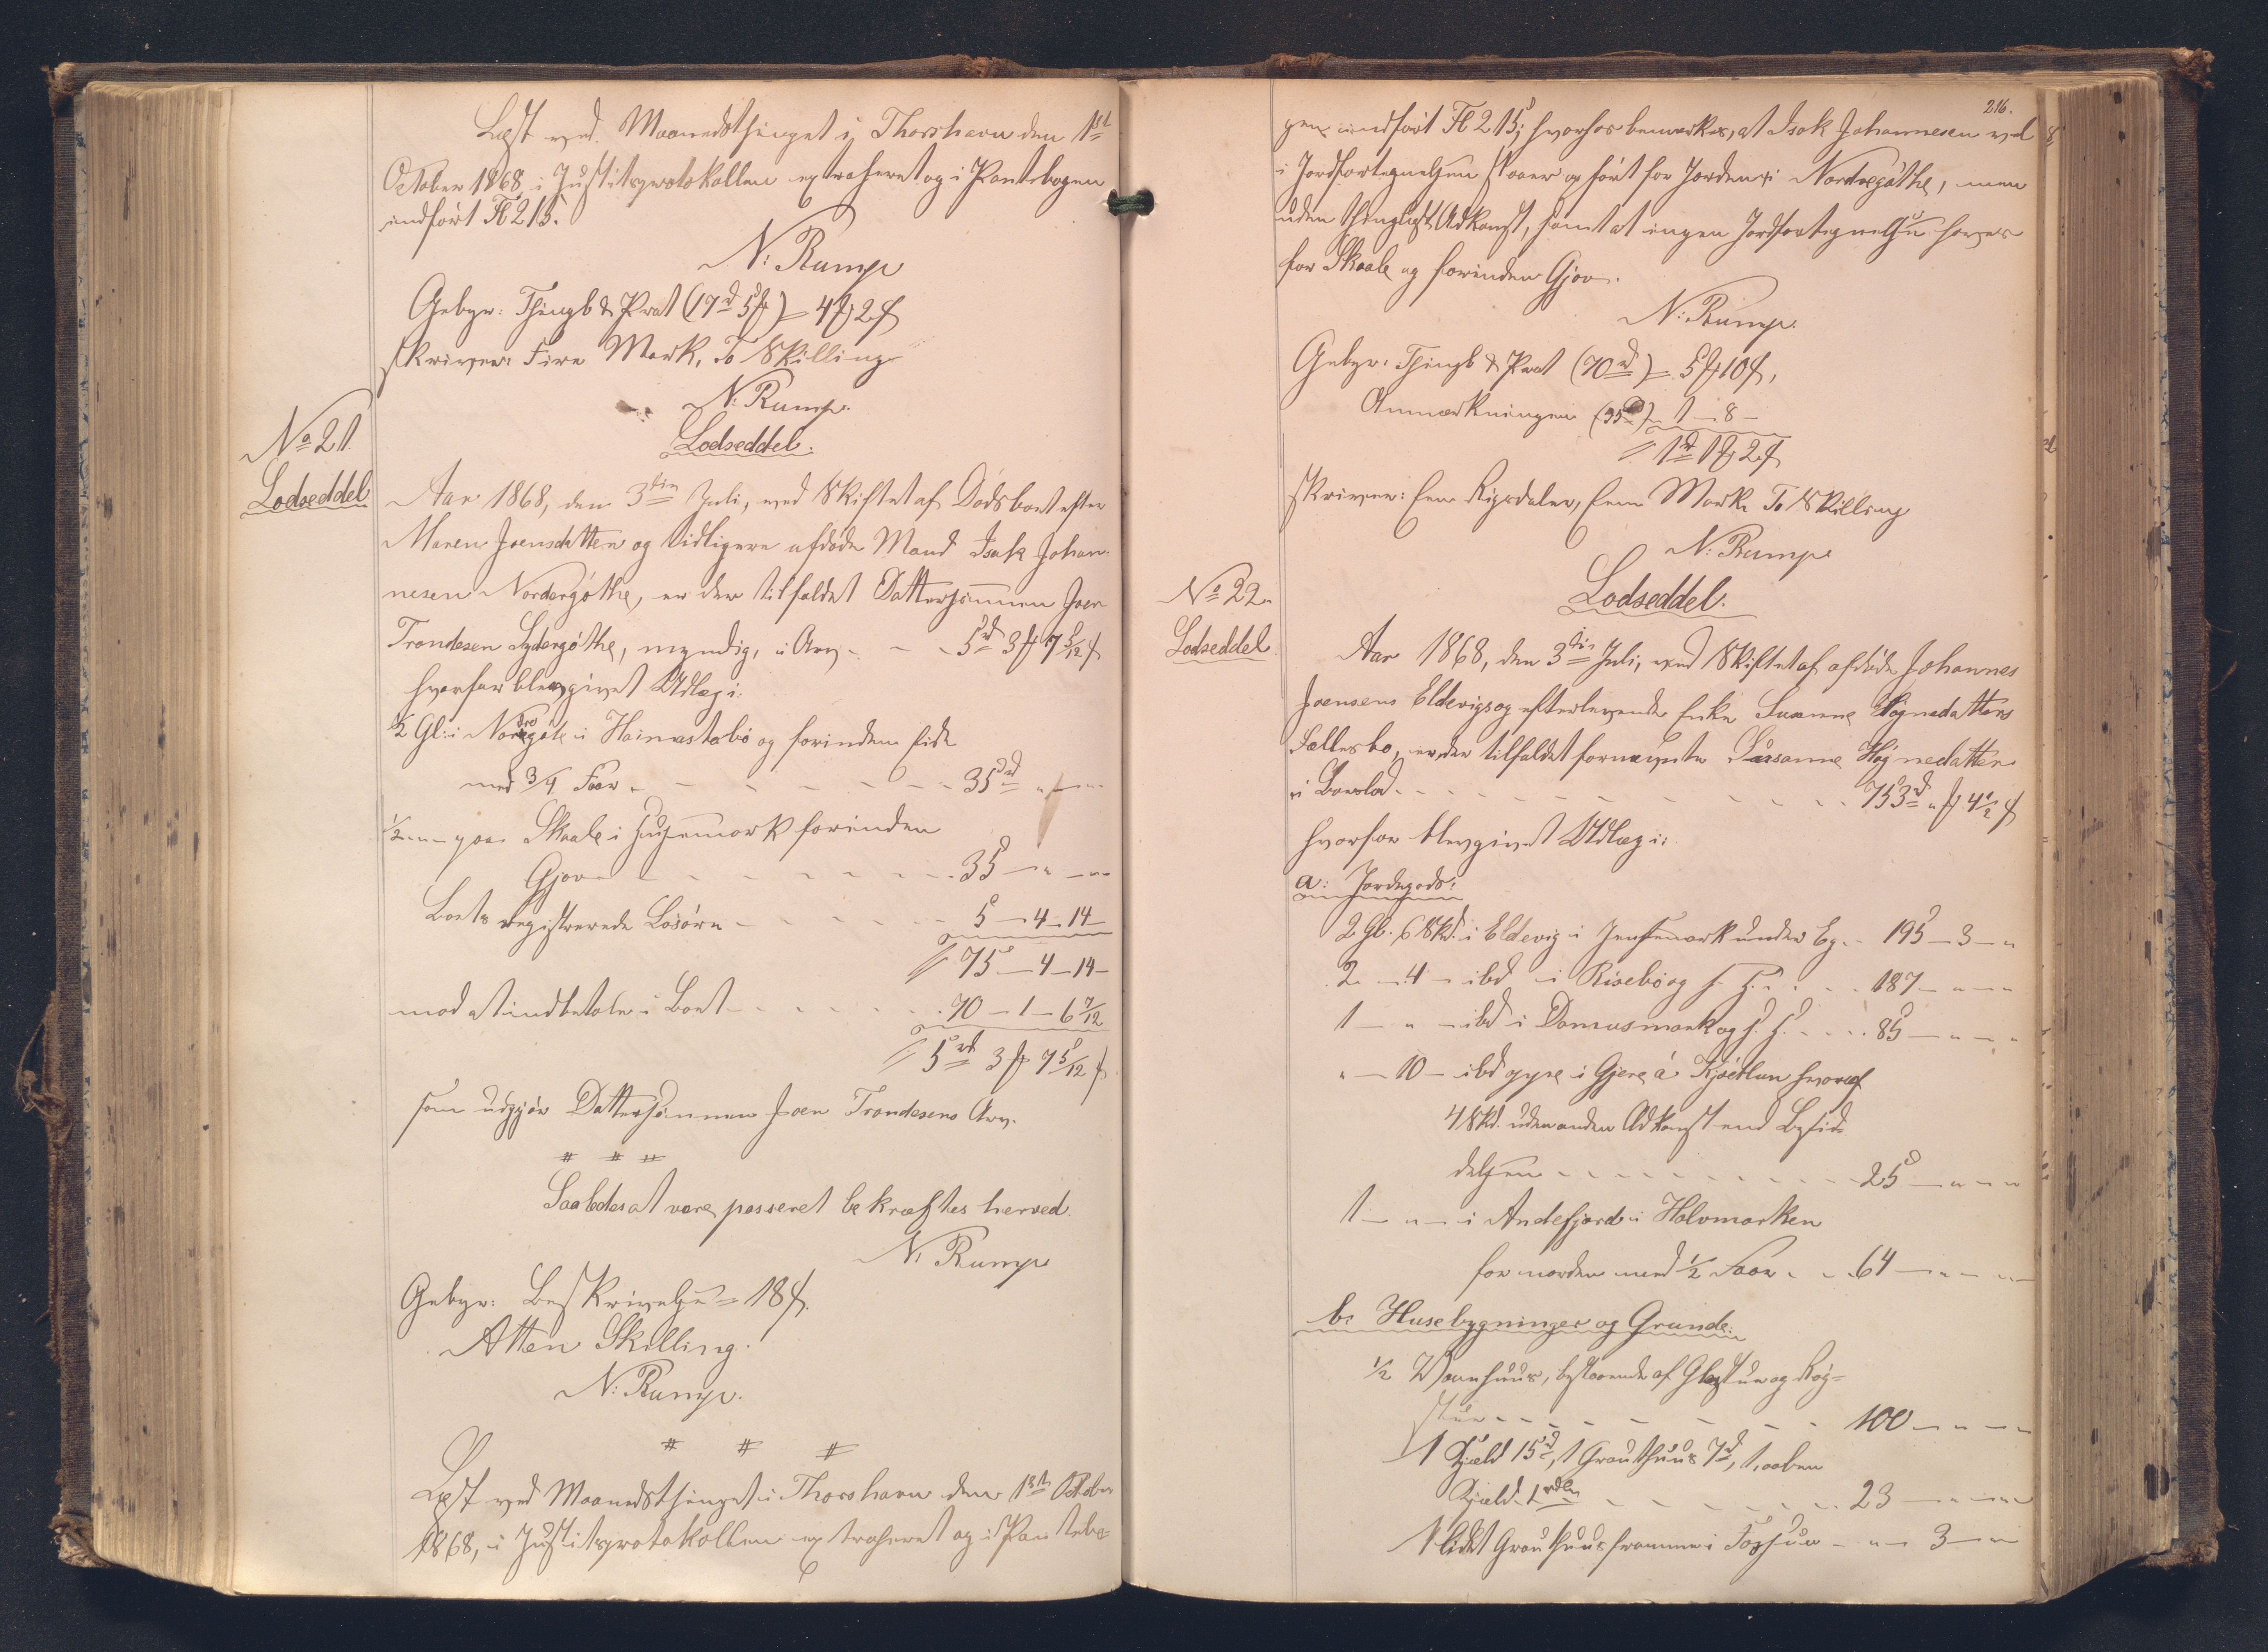 Læst ved Maanedsthinget i Thorshavn den 1st
October 1868 i Justitsprotokollen extraheret og i Pantebogen
indført Fl 215.
N: Rump
Gebyr: Thingl & Prot (17rd 5ß) = 4 ℳ 2 ß
skriver Fire Mark, To Skilling
N: Rump.
No 21.
Lodseddel
Lodseddel.
Aar 1868, den 3die Juli, ved Skiftet af Dødsboet efter
Maren Joensdatter og tidligere afdøde Mand Isak Johan-
nesen Nordergøthe, er der tilfaldet Dattersønnen Joen
Trondesen Sydergøthe, myndig, i Arv - - 5rd 3 ℳ 7 5/12 ß
hvorfor blev givet Udlæg i:
1/2 Gl: i Nordregøte i Heimastabø og forinden Eide
med 3/4 Foer - - - - - 35rd " - "
1/2 - " - paa Skaale i Huusemark forinden
Gjov - - - - - 35 - " - "
Boets registrerede Løsøre - - - - 5 - 4 - 14 -
75 - 4 - 14 -
mod at indbetale i Boet - - - - 70 - 1 - 6 7/12
5rd 3 ℳ 7 5/12 ß
som udgjør Dattersønnen Joen Trondesens Arv.
# # #
Saaledes at være passeret bekræftes herved.
N: Rump
Gebyr: Beskrivelse = 18 ß.
Atten Skilling.
N: Rump.
# # #
Læst ved Maanedsthinget i Thorshavn den 1st October
1868, i Justitsprotokollen extraheret og i Pantebo-
216.
gen indført Fl 215; hvorhos bemærkes, at Isak Johannesen vel
i Jordfortegnelsen staaer opført for Jorden i Nordregøthe, men
uden thinglæst Adkomst, samt at ingen Jordfortegnelse haves
for Skaale og forinden Gjov.
N: Rump.
Gebyr: Thingl & Prot (70rd) = 5 ℳ 10 ß,
Anmærkningen (35rd) - 1 - 8 -
1rd 1 ℳ 2 ß
skriver: Een Rigsdaler, Een Mark To Skilling
N: Rump
No 22.
Lodseddel
Lodseddel.
Aar 1868, den 3die Juli, ved Skiftet af afdøde Johannes
Joensens Eldevig og efterlevende Enke Susanne Høgnedatters
Fællesbo, er der tilfaldet fornævnte Susanne Høgnedatter
i Boeslod - - - - - 753rd " ℳ 4 1/2 ß
hvorfor blev givet Udlæg i:
a: Jordegods:
2 Gl. 6 Skd. i Eldevig i Jensemark under Eg - 195 - 3 - "
2 - 4 - ibd - i Risebø og f. H. - - 187 - " - "
1 - " - ibd i Domusmark og f. H. - - 85 - " - "
" - 10 - ibd i Gjere á Kjøtlun hvoraf
4 Skd. uden anden Adkomst end Besid-
delsen - - - - - 25 - " - "
1 - " - i Andefjord i Halvmarken
for norden med 1/2 Foer - - 64 - " - "
b: Husebygninger og Grunde:
1/2 Vaanhuus, bestaaende af Glastue og Røg-
stue - - - - - 100 - " - "
1 Hjæld 15rd, 1 Grauthuus 7rd, 1 aaben
Hjæld 1rdlr - - - - - 23 - " - "
1 lidet Grauthuus framme i - " - 3 - "